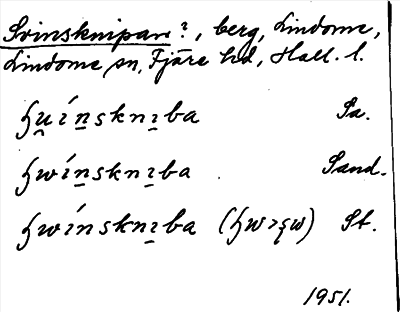 Svinsknipan?, berg, Lindome,
Lindome sn, Fjäre hd, Hall. l.
ꜧu̯ín̲skni̲ba Sa.
ꜧwín̲skni̲ba Sand.
ꜧwínskni̲ba St.
1951.